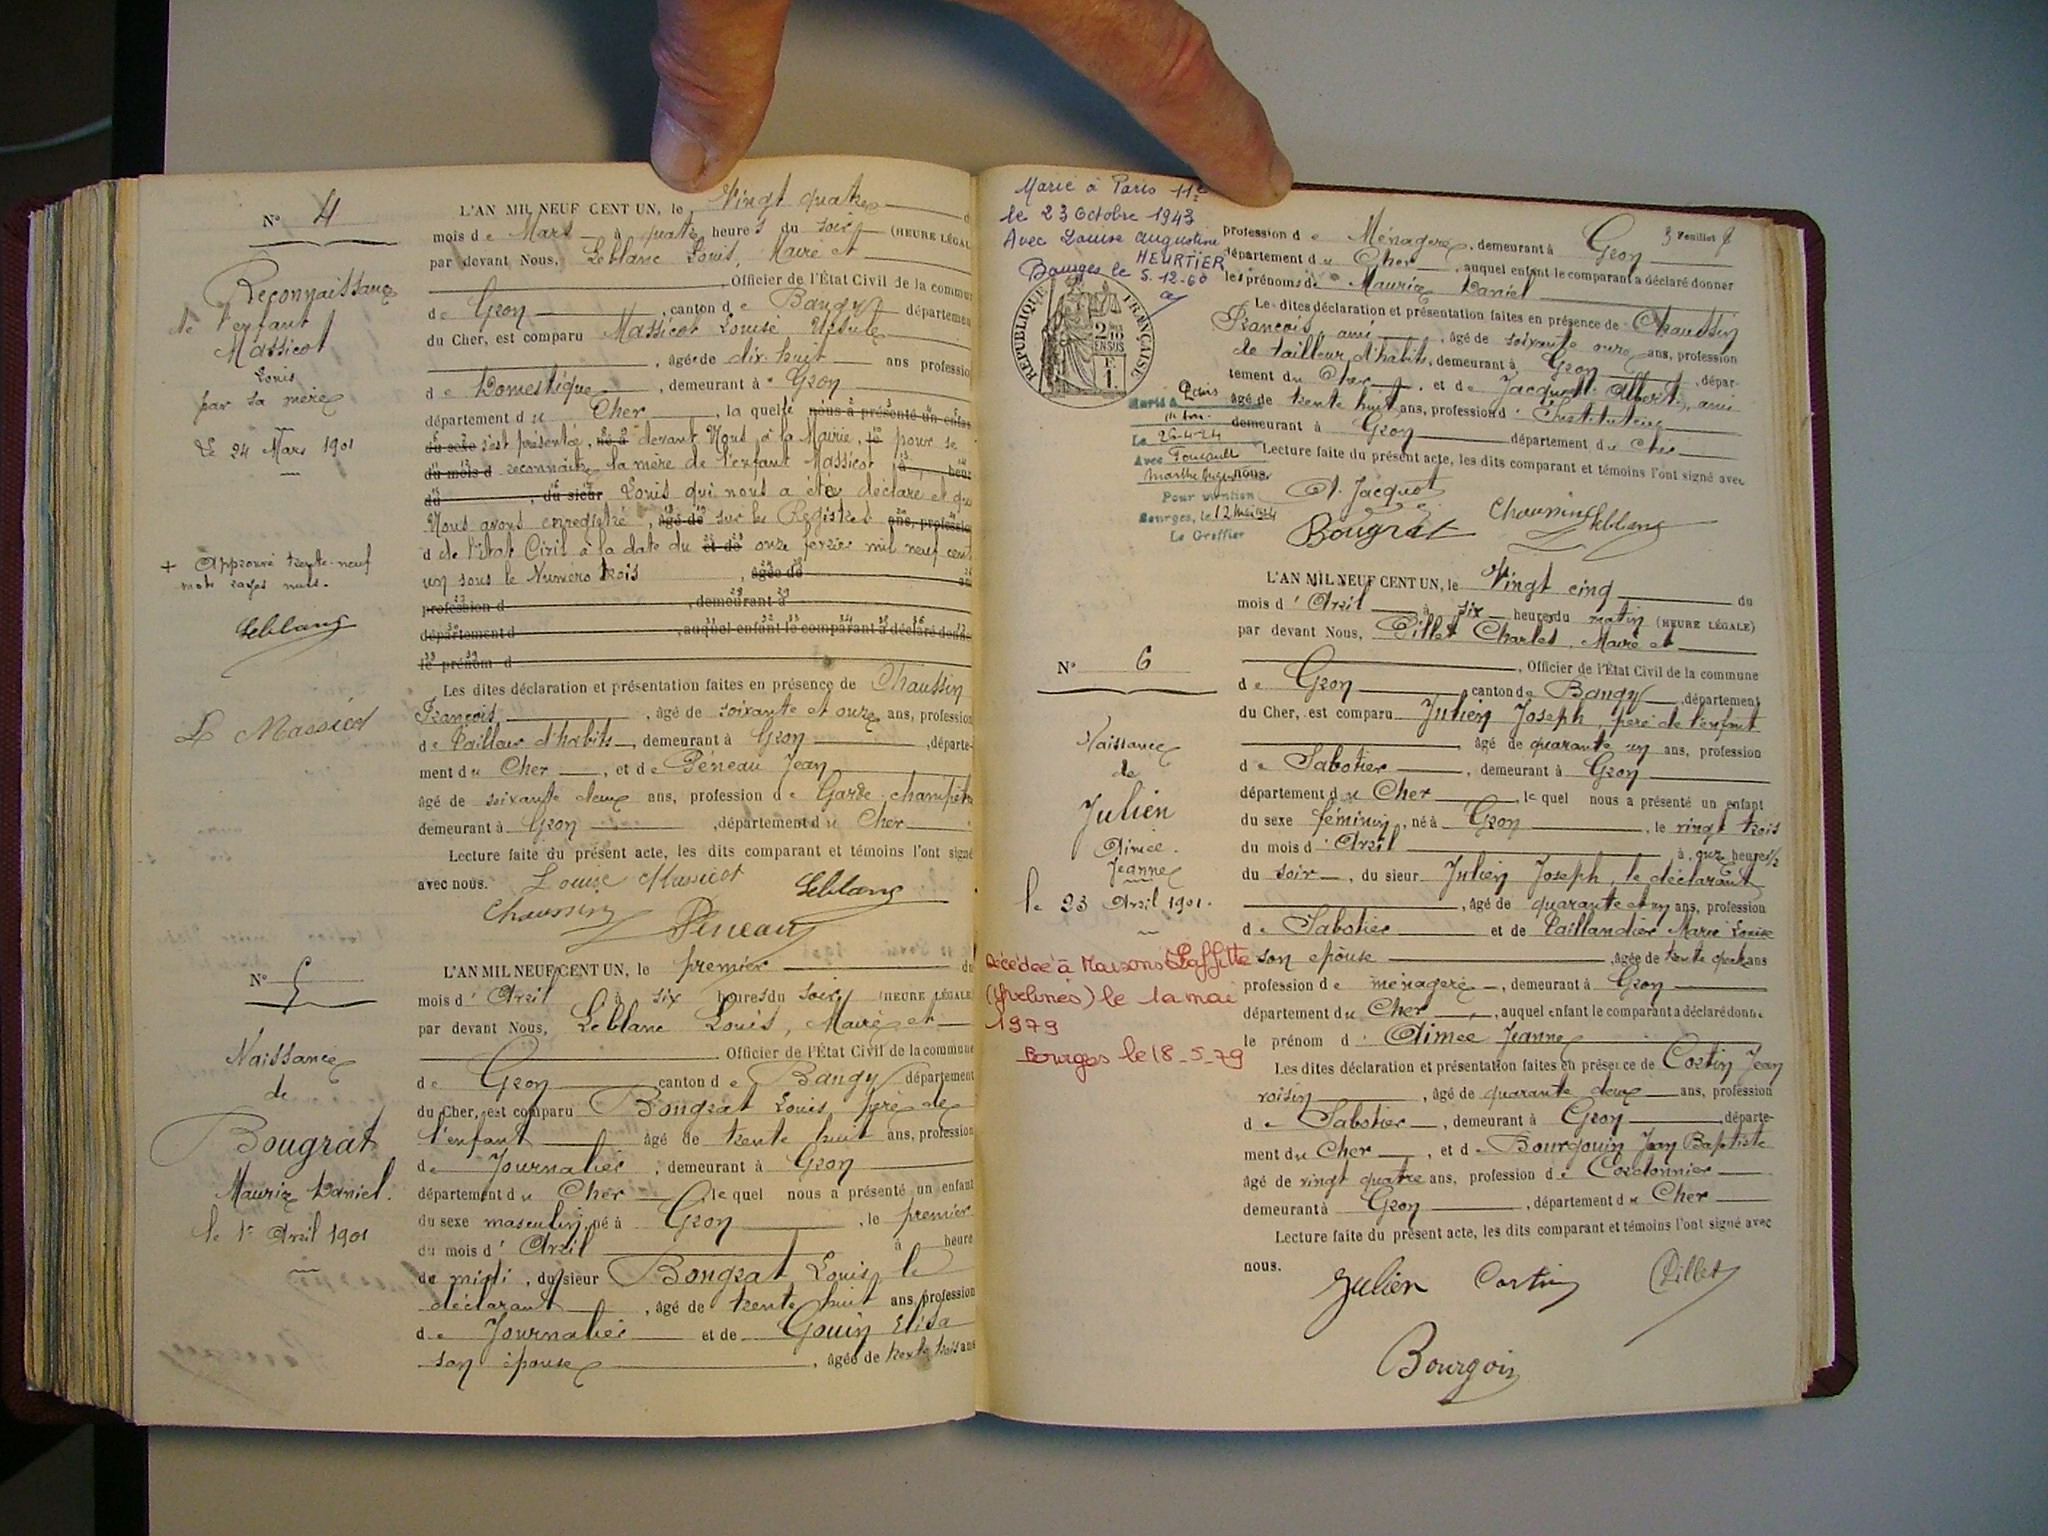 N° 4
Reconnaissance
de l'enfant
Massicot
Louis
par sa mère
Le 24 Mars 1901
+ Approuvé trente-neuf
mots rayés nuls.
Leblanc
L Massicot
L'AN MIL NEUF CENT UN, le Vingt quatre d
mois de Mars à quatre heures du soir (HEURE LÉGAL
par devant Nous, Leblanc Louis, Maire et
, Officier de l'État Civil de la commun
de Gron , canton de Baugy départemen
du Cher, est comparu Massicot Louise Ursule
, âgée de dix-huit ans professio
de Domestique , demeurant à Gron
département du Cher , la quelle nous a présenté un enfan
du sexe s'est présentée, né à devant Nous, à la Mairie, le pour se
du mois d reconnaître la mère de l'enfant Massicot à heur
du , du sieur Louis qui nous a été déclaré et que
Nous avons enregistré , âgé de sur les Registres ans, professio
d de l'état Civil à la date du et de onze février mil neuf cent
un sous le Numéro trois , âgée de an
profession d , demeurant à
département d , auquel enfant le comparant a déclaré donne
le prénom d
Les dites déclaration et présentation faites en présence de Chaussin
François , âgé de soixante et onze ans, profession
de Tailleur d'habits , demeurant à Gron , départe-
ment du Cher , et de Péneau Jean
âgé de soixante deux ans, profession de Garde-champêtre
demeurant à Gron , département du Cher
Lecture faite du présent acte, les dits comparant et témoins l'ont signé
avec nous. Louise Massicot Leblanc
Chaussin Péneau
N° 5
Naissance
de
Bougrat
Maurice Daniel.
le 1er Avril 1901
L'AN MIL NEUF CENT UN, le premier du
mois d'Avril à six heures du soir (HEURE LÉGALE
par devant Nous, Leblanc Louis, Maire et
Officier de l'État Civil de la commune
de Gron canton de Baugy département
du Cher, est comparu Bougrat Louis père de
l'enfant âgé de trente huit ans, profession
de Journalier , demeurant à Gron
département du Cher le quel nous a présenté un enfant
du sexe masculin, né à Gron , le premier
du mois d'Avril à heure
de midi , du sieur Bougrat Louis, le
déclarant , âgé de trente huit ans, profession
de Journalier et de Gouin Elisa
son épouse , âgée de trente trois ans
Marié à Paris 11e
le 23 Octobre 1943
Avec Louise Augustine
HEURTIER
Bourges le 5.12.60
RÉPUBLIQUE FRANÇAISE
Marié à Paris
Le 26-4-24
Avec Foucault
Marthe
Pour mention
Bourges, le 12 Mai 1924
Le Greffier
3 Feuillet
profession de Ménagère , demeurant à Gron
département du Cher , auquel enfant le comparant a déclaré donner
les prénoms de Maurice Daniel
Les dites déclaration et présentation faites en présence de Chaussin
François, ami , âgé de soixante onze ans, profession
de tailleur d'habits, demeurant à Gron , dépar-
tement du Cher , et de Jacquot Albert, ami
âgé de trente huit ans, profession d'Instituteur
demeurant à Gron département du Cher
Lecture faite du présent acte, les dits comparant et témoins l'ont signé avec
nous. A. Jacquot
Bougrat Chaussin Leblanc
N° 6
Naissance
de
Julien
Aimée.
Jeanne
le 23 Avril 1901.
Décédée à Maisons Laffitte
(Yvelines) le 12 mai
1979
Bourges le 18-5-79
L'AN MIL NEUF CENT UN, le Vingt cinq du
mois d'Avril à six heures du matin (HEURE LÉGALE)
par devant Nous, Pillet Charles, Maire et
, Officier de l'État Civil de la commune
de Gron canton de Baugy , département
du Cher, est comparu Julien Joseph, père de l'enfant
âgé de quarante un ans, profession
de Sabotier , demeurant à Gron
département du Cher , le quel nous a présenté un enfant
du sexe féminin , né à Gron , le vingt trois
du mois d'Avril à onze heures 1/2
du soir , du sieur Julien Joseph, le déclarant
, âgé de quarante et un ans, profession
de Sabotier et de Taillandier Marie Louise
son épouse , âgée de trente quatre ans
profession de ménagère , demeurant à Gron
département du Cher , auquel enfant le comparant a déclaré donner
le prénom d'Aimée Jeanne
Les dites déclaration et présentation faites en présence de Cortin Jean
voisin , âgé de quarante deux ans, profession
de Sabotier , demeurant à Gron , départe-
ment du Cher , et de Bourgouin Jean Baptiste
âgé de vingt quatre ans, profession de Cordonnier
demeurant à Gron , département du Cher
Lecture faite du présent acte, les dits comparant et témoins l'ont signé avec
nous.
Julien Cortin Pillet
Bourgoin